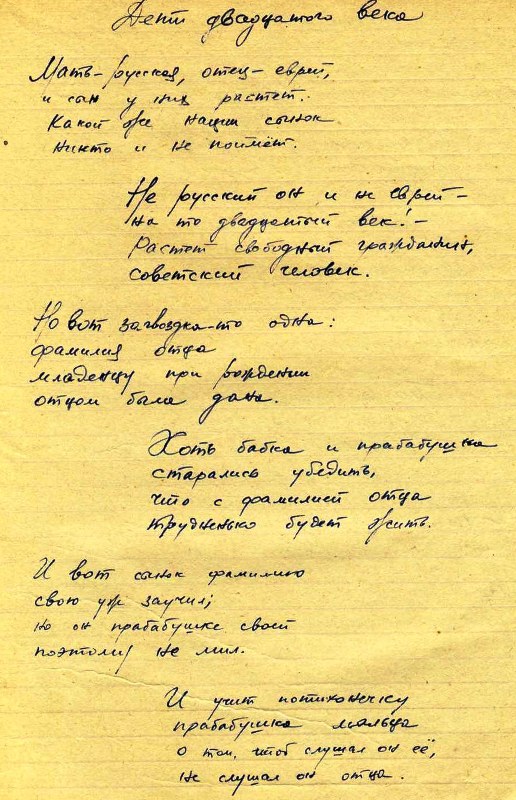 Дети двадцатого века
Мать-русская, отец-еврей,
и сын у них растет.
Какой же нации сынок
никто и не поймёт.
Не русский он и не еврей-
на то двадцатый век!-
Растет свободный гражданин,
советский человек.
Но вот загвоздка-то одна:
фамилия отца
младенцу при рождении
отцом была дана.
Хоть бабка и прабабушка
старались убедить,
что с фамилией отца
трудненько будет жить.
И вот сынок фамилию
свою уж заучил;
но он прабабушке своей
поэтому не мил.
И учит потихонечку
прабабушка мальца
о том, чтоб слушал он её,
не слушал он отца.